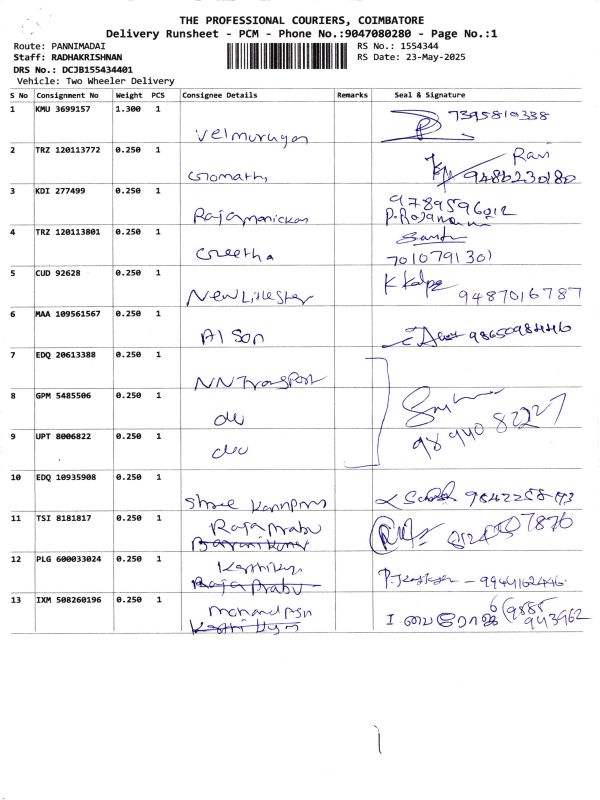 THE PROFESSIONAL COURIERS, COIMBATORE
Delivery Runsheet - PCM - Phone No.:9047080280 - Page No.:1
Route: PANNIMADAI
Staff: RADHAKRISHNAN
DRS No.: DCJB155434401
Vehicle: Two Wheeler Delivery
RS No.: 1554344
RS Date: 23-May-2025
S No Consignment No Weight PCS Consignee Details Remarks Seal & Signature
1 KMU 3699157 1.300 1 Velmurugan 7395810338
2 TRZ 120113772 0.250 1 Gomathi Ravi
3 KDI 277499 0.250 1 Rajamanickam 9789596012
4 TRZ 120113801 0.250 1 Geetha
7010791301
5 CUD 92628 0.250 1 9487016787
6 MAA 109561567 0.250 1 Al Son
7 EDQ 20613388 0.250 1 NN Transport
8 GPM 5485506 0.250 1 do
9 UPT 8006822 0.250 1 do 98940 82227
10 EDQ 10935908 0.250 1 Shree
11 TSI 8181817 0.250 1 Raja Prabu
12 PLG 600033024 0.250 1 9944162446
Raja Prabu
13 IXM 508260196 0.250 1